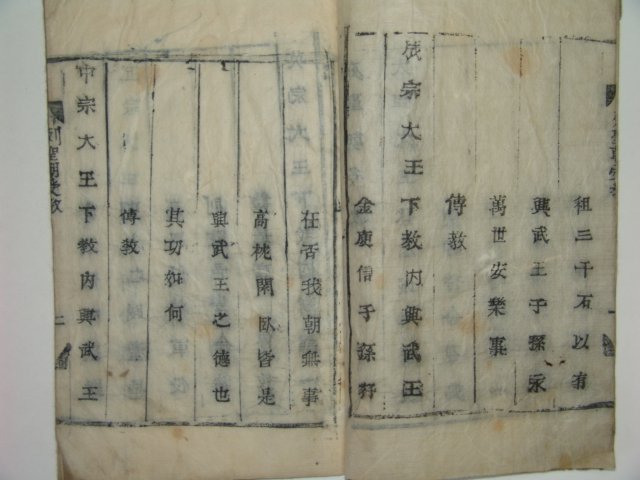 租三千石以有
興武王子孫永
萬世安樂事
傳教
成宗大王下教內興武王
金庾信子孫存
在否我朝無事
高枕閑臥皆是
興武王之德也
其功如何
傳教
中宗大王下教內興武王
列聖朝受教
二